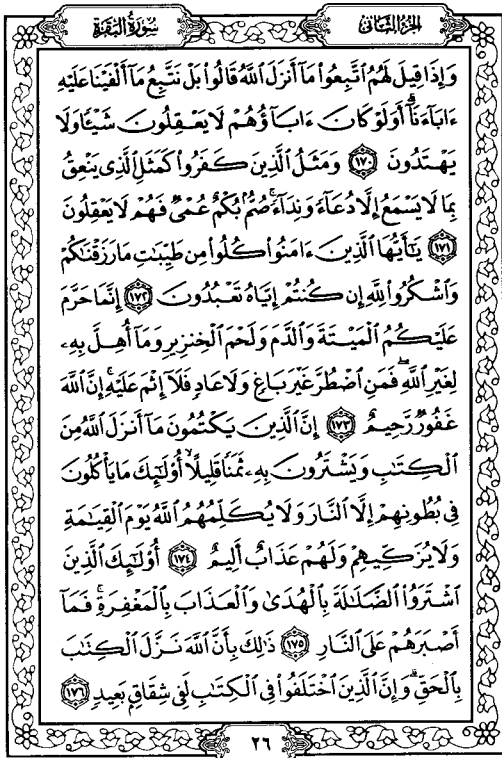 سُورَةُ البَقَرَةِ
الجزء الثاني
وَإِذَا قِيلَ لَهُمُ ٱتَّبِعُوا۟ مَآ أَنزَلَ ٱللَّهُ قَالُوا۟ بَلْ نَتَّبِعُ مَآ أَلْفَيْنَا عَلَيْهِ
ءَابَآءَنَآ ۗ أَوَلَوْ كَانَ ءَابَآؤُهُمْ لَا يَعْقِلُونَ شَيْـًٔا وَلَا
يَهْتَدُونَ ١٧٠ وَمَثَلُ ٱلَّذِينَ كَفَرُوا۟ كَمَثَلِ ٱلَّذِى يَنْعِقُ
بِمَا لَا يَسْمَعُ إِلَّا دُعَآءً وَنِدَآءً ۚ صُمٌّۢ بُكْمٌ عُمْىٌ فَهُمْ لَا يَعْقِلُونَ
١٧١ يَـٰٓأَيُّهَا ٱلَّذِينَ ءَامَنُوا۟ كُلُوا۟ مِن طَيِّبَـٰتِ مَا رَزَقْنَـٰكُمْ
وَٱشْكُرُوا۟ لِلَّهِ إِن كُنتُمْ إِيَّاهُ تَعْبُدُونَ ١٧٢ إِنَّمَا حَرَّمَ
عَلَيْكُمُ ٱلْمَيْتَةَ وَٱلدَّمَ وَلَحْمَ ٱلْخِنزِيرِ وَمَآ أُهِلَّ بِهِۦ
لِغَيْرِ ٱللَّهِ ۖ فَمَنِ ٱضْطُرَّ غَيْرَ بَاغٍ وَلَا عَادٍ فَلَآ إِثْمَ عَلَيْهِ ۚ إِنَّ ٱللَّهَ
غَفُورٌ رَّحِيمٌ ١٧٣ إِنَّ ٱلَّذِينَ يَكْتُمُونَ مَآ أَنزَلَ ٱللَّهُ مِنَ
ٱلْكِتَـٰبِ وَيَشْتَرُونَ بِهِۦ ثَمَنًا قَلِيلًا ۙ أُو۟لَـٰٓئِكَ مَا يَأْكُلُونَ
فِى بُطُونِهِمْ إِلَّا ٱلنَّارَ وَلَا يُكَلِّمُهُمُ ٱللَّهُ يَوْمَ ٱلْقِيَـٰمَةِ
وَلَا يُزَكِّيهِمْ وَلَهُمْ عَذَابٌ أَلِيمٌ ١٧٤ أُو۟لَـٰٓئِكَ ٱلَّذِينَ
ٱشْتَرَوُا۟ ٱلضَّلَـٰلَةَ بِٱلْهُدَىٰ وَٱلْعَذَابَ بِٱلْمَغْفِرَةِ ۚ فَمَآ
أَصْبَرَهُمْ عَلَى ٱلنَّارِ ١٧٥ ذَٰلِكَ بِأَنَّ ٱللَّهَ نَزَّلَ ٱلْكِتَـٰبَ
بِٱلْحَقِّ ۗ وَإِنَّ ٱلَّذِينَ ٱخْتَلَفُوا۟ فِى ٱلْكِتَـٰبِ لَفِى شِقَاقٍۭ بَعِيدٍ ١٧٦
٢٦